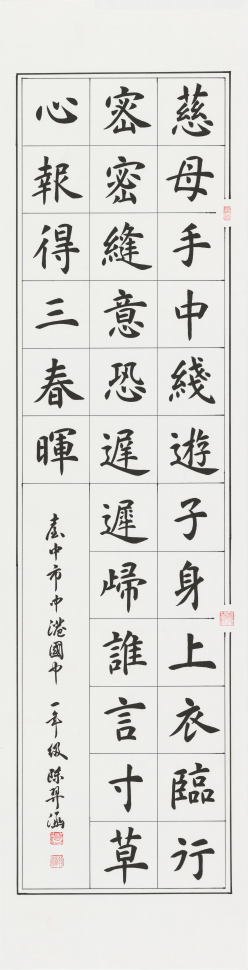 慈母手中綫遊子身上衣臨行
密密縫意恐遲遲歸誰言寸草
心報得三春暉
臺中市中港國中 一年級 陳羿涵